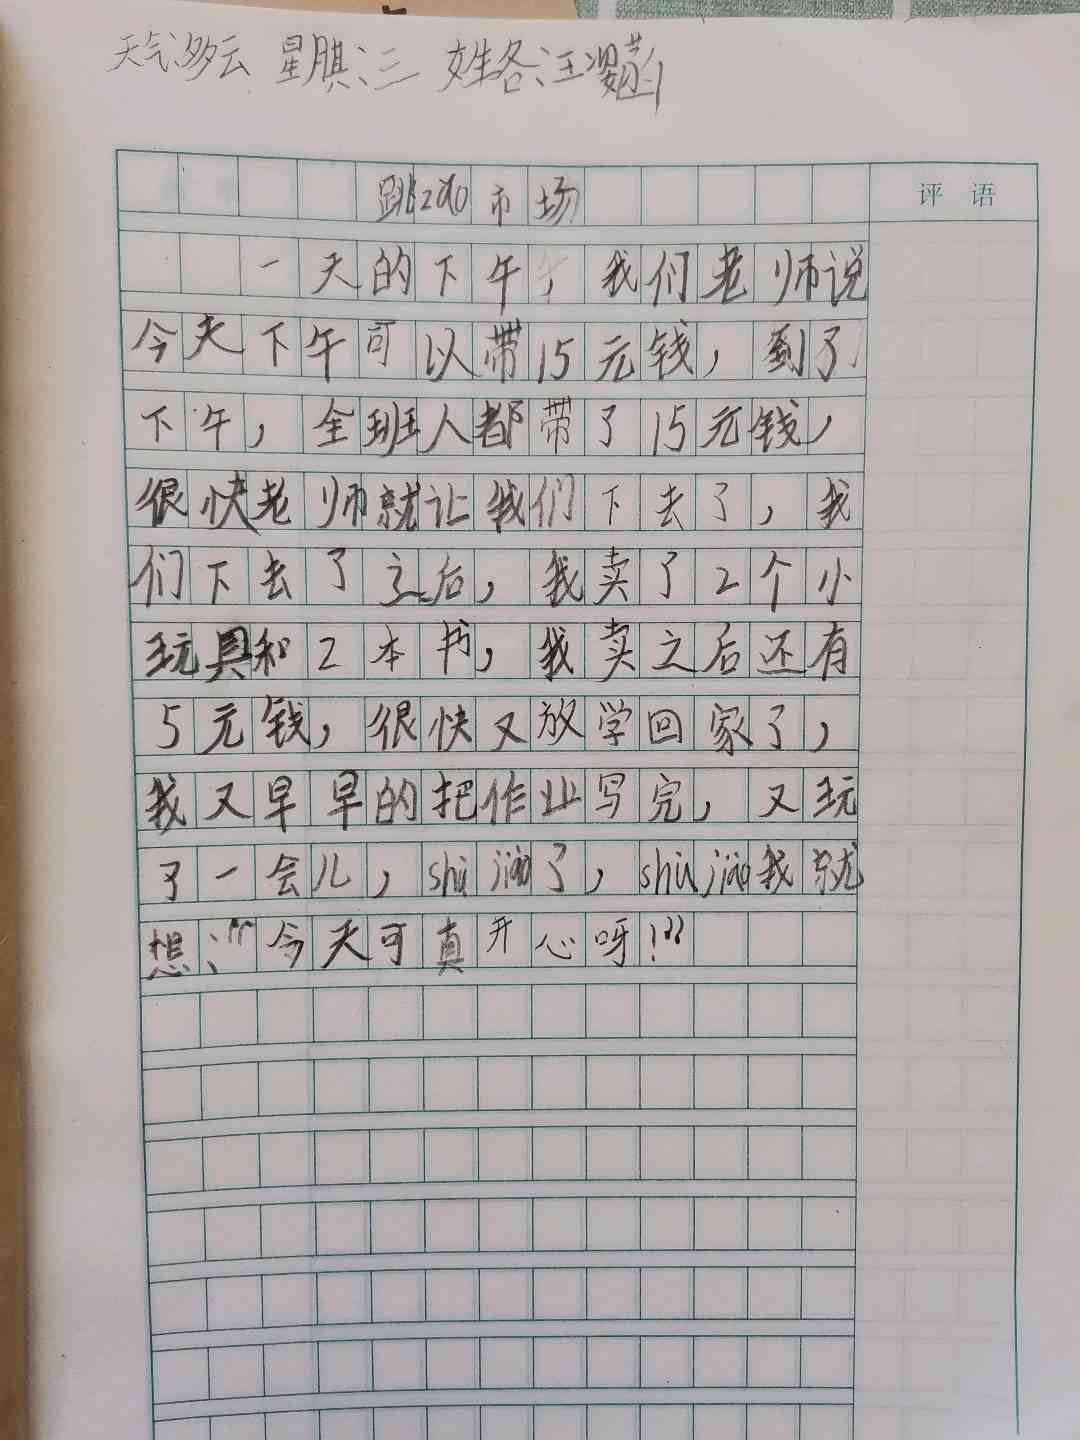 天气：多云 星期：三 姓名：汪
评 语
跳zao市场
一天的下午，我们老师说
今天下午可以带15元钱，到了
下午，全班人都带了15元钱，
很快老师就让我们下去了，我
们下去了之后，我卖了2个小
玩具和2本书，我卖之后还有
5元钱，很快又放学回家了，
我又早早的把作业写完，又玩
了一会儿，shuijiao了，shuijiao我就
想：“今天可真开心呀！”